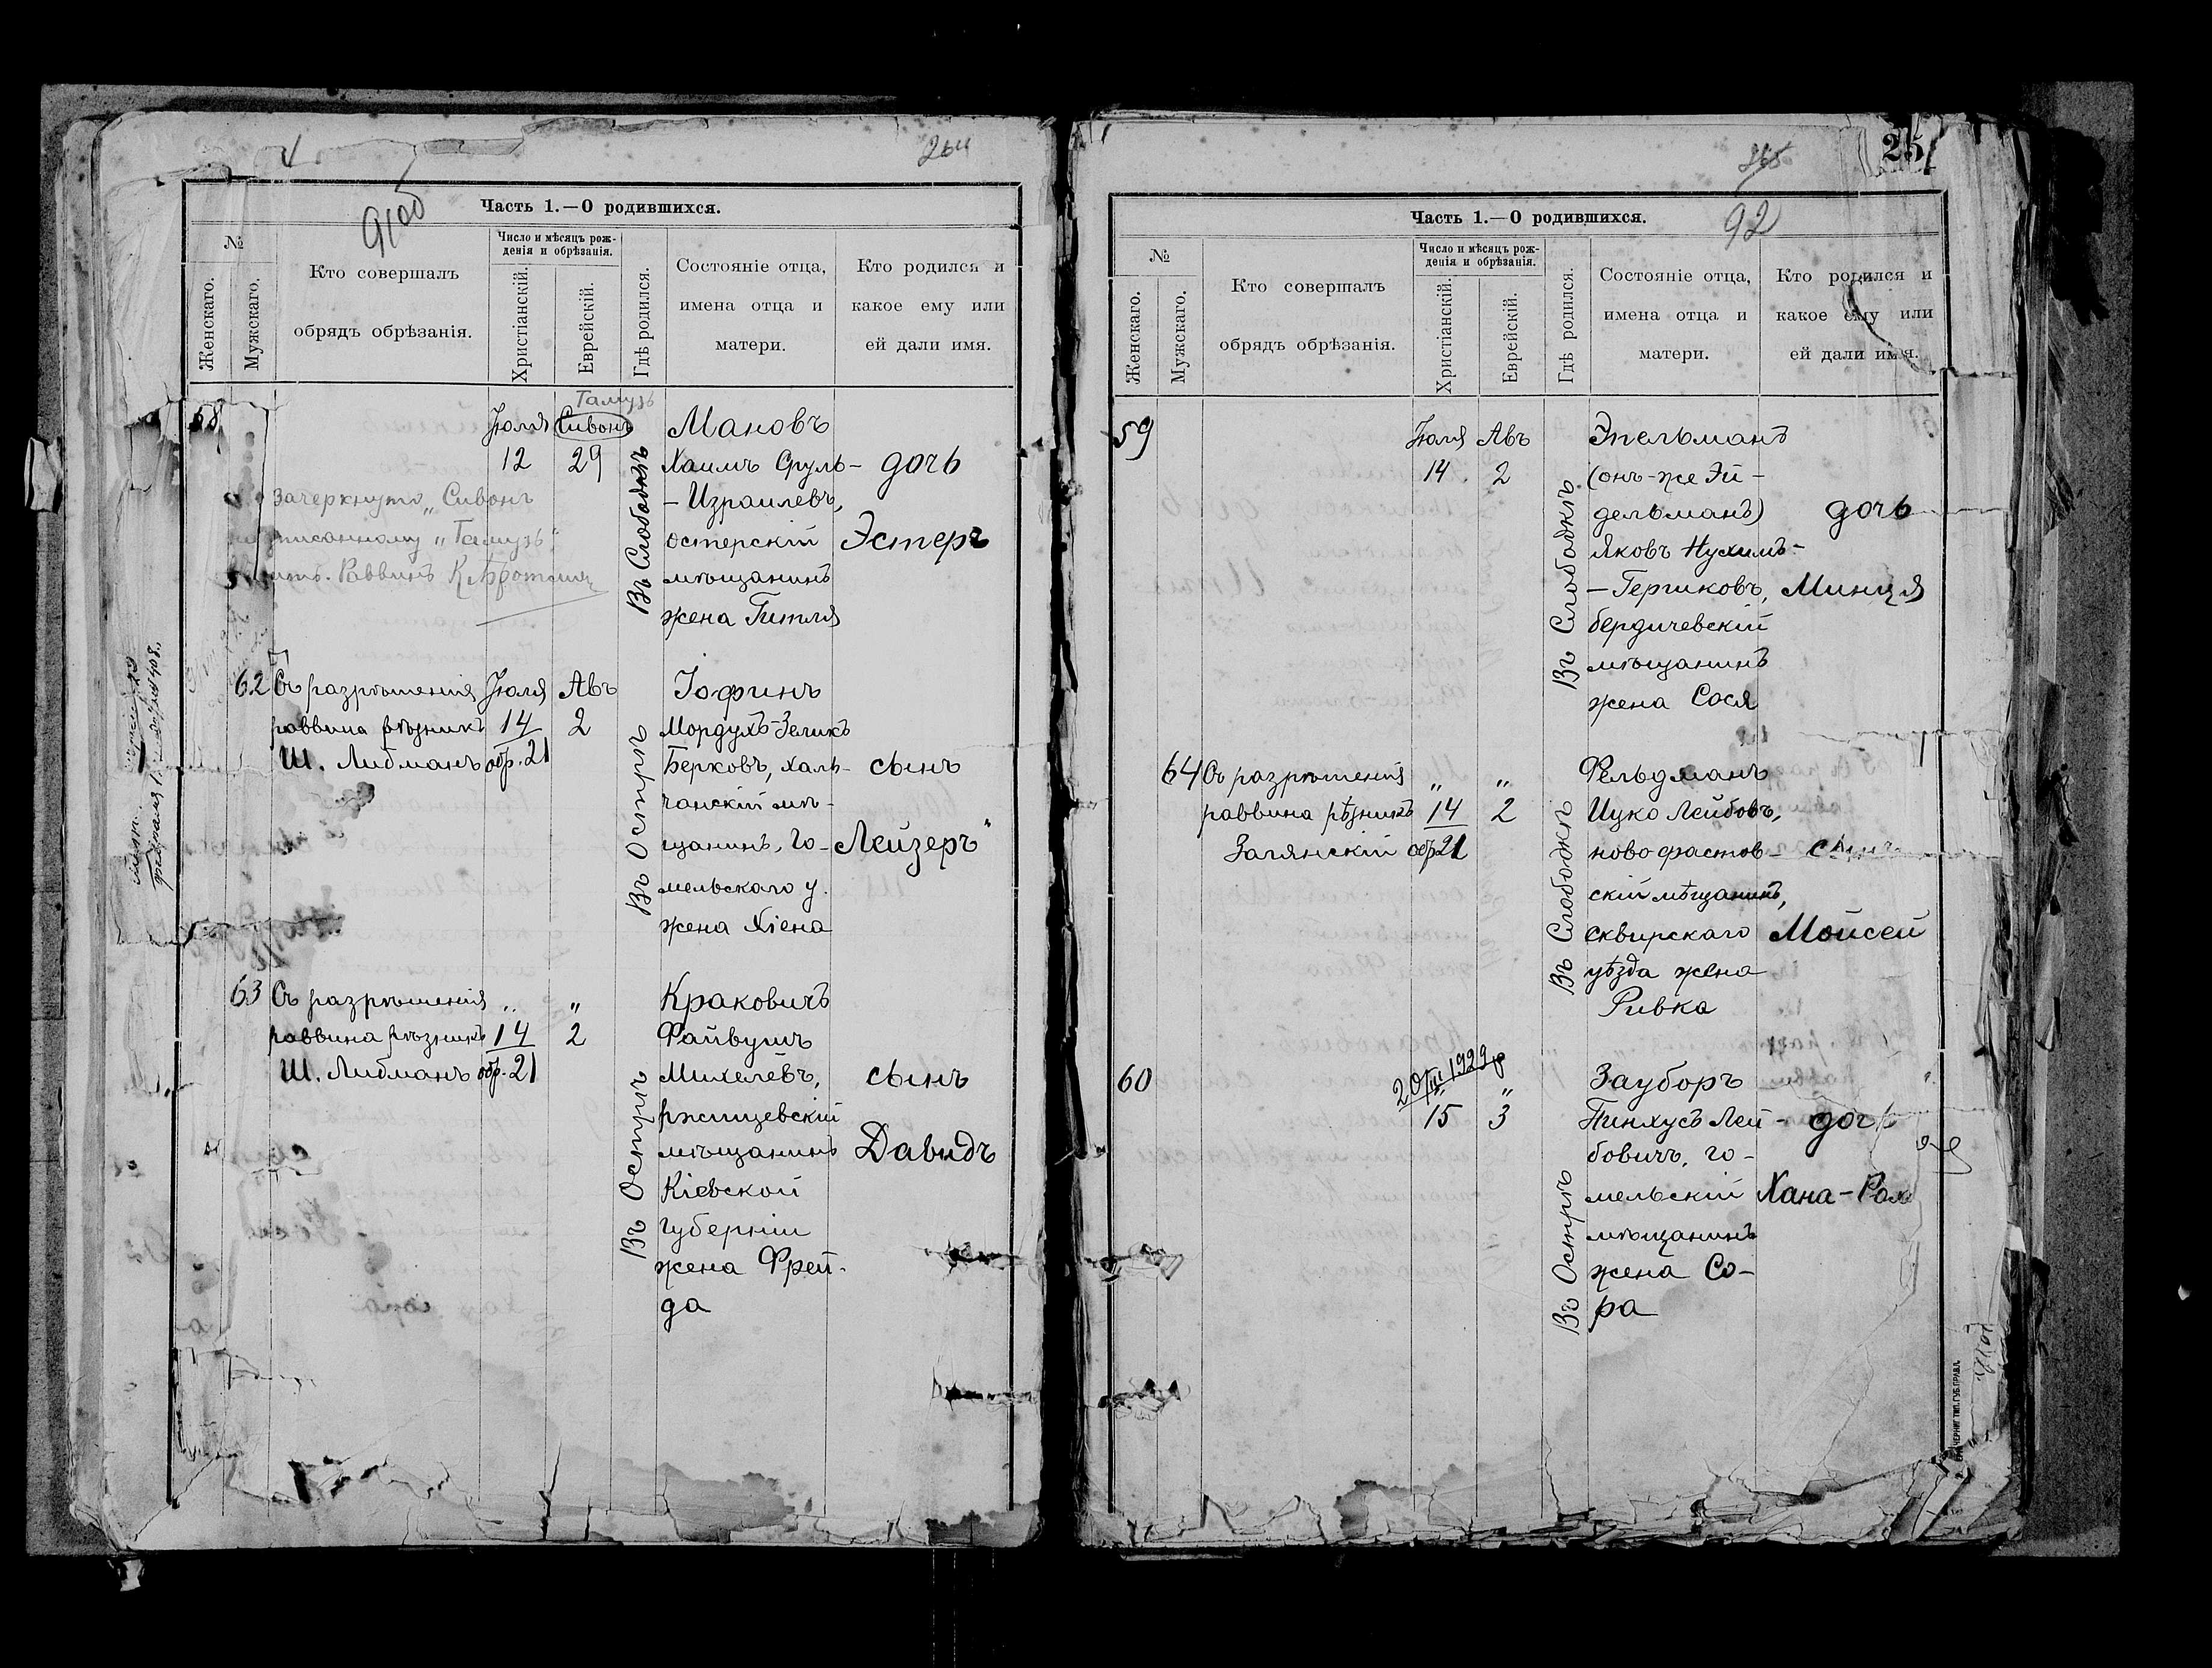 264
91об
Часть 1.—О родившихся.
№
Женскаго.
Мужскаго.
Кто совершалъ
обрядъ обрѣзанія.
Число и мѣсяцъ рож-
денія и обрѣзанія.
Христіанскій.
Еврейскій.
Гдѣ родился.
Состояніе отца,
имена отца и
матери.
Кто родился и
какое ему или
ей дали имя.
58
Тамузъ
Іюля Сивонъ
12 29
Въ Слободкѣ
Мановъ
Хаимъ Сруль-
- Израилевъ,
остерскій
мѣщанинъ
жена Гитля
дочь
Эстеръ
зачеркнуто „Сивонъ
„Тамузъ"
Раввинъ
62
Съ разрѣшенія
раввина рѣзникъ
Ш. Либманъ
Іюля Авъ
14 2
обр. 21
Въ Острѣ
Іофинъ
Мордухъ-Зеликъ
Берковъ, халь-
чанскій мѣ-
щанинъ, Го-
мельскаго у.
жена Хіена
сынъ
Лейзеръ"
63
Съ разрѣшенія
раввина рѣзникъ
Ш. Либманъ
„ „
14 2
обр. 21
Въ Острѣ
Краковичъ
Файвушъ
Михелевъ,
ржищевскій
мѣщанинъ
Кіевской
губерніи
жена Фрей-
да
сынъ
Давидъ
265
25
92
Часть 1.—О родившихся.
№
Женскаго.
Мужскаго.
Кто совершалъ
обрядъ обрѣзанія.
Число и мѣсяцъ рож-
денія и обрѣзанія.
Христіанскій.
Еврейскій.
Гдѣ родился.
Состояніе отца,
имена отца и
матери.
Кто родился и
какое ему или
ей дали имя.
59
Іюля Авъ
14 2
Въ Слободкѣ
Эпельманъ
(онъ-же Эй-
дельманъ)
Яковъ Нухимъ-
- Гершковъ,
бердичевскій
мѣщанинъ
жена Сося
дочь
Минця
64
Съ разрѣшенія
раввина рѣзникъ
Залянскій
„ „
14 2
обр 21
Въ Слободкѣ
Фельдманъ
Ицко Лейбовъ,
новофастов-
скій мѣщанинъ,
сквирскаго
уѣзда жена
Ривка
сынъ
Мойсей
60
20/III 1929 р
„
15 3
Въ Острѣ
Зауборъ
Пинхусъ Лей-
бовичъ, го-
мельскій
мѣщанинъ
жена Со-
ра
дочь
Хана-Рах